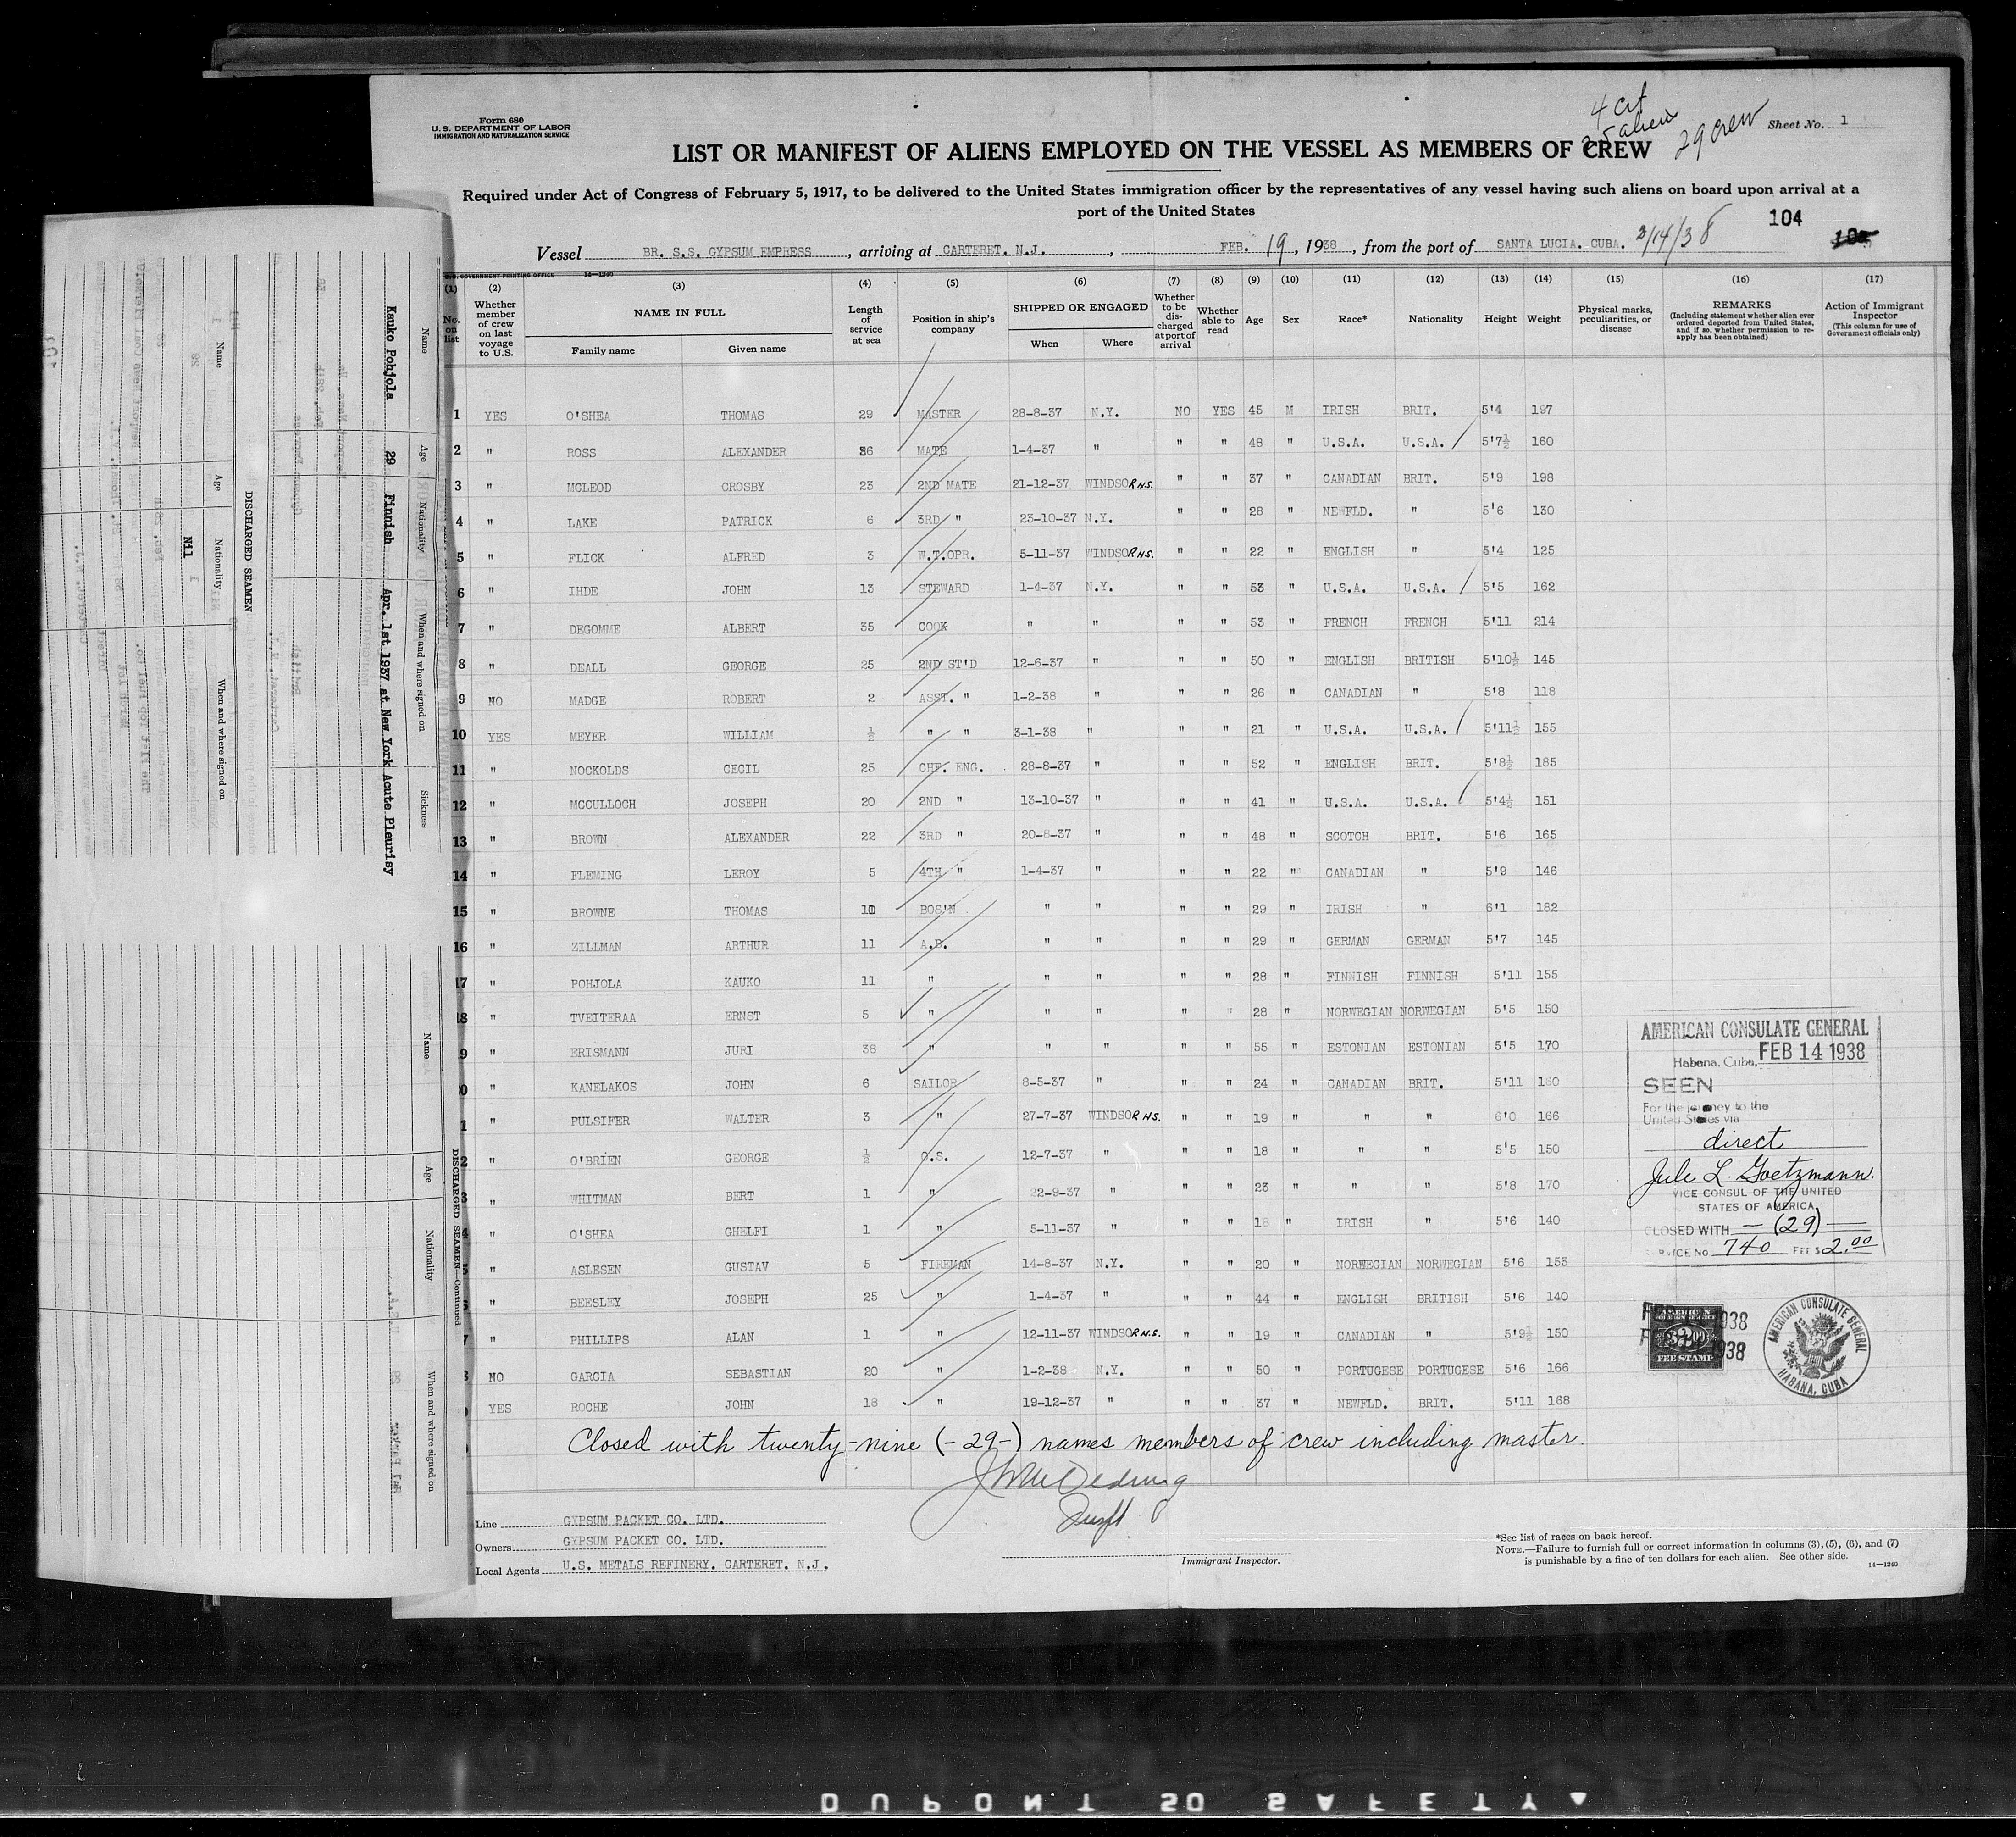 Form 680
U.S. DEPARTMENT OF LABOR
IMMIGRATION AND NATURALIZATION SERVICE
4 cit
25 alien
29 crew
Sheet No. 1
LIST OR MANIFEST OF ALIENS EMPLOYED ON THE VESSEL AS MEMBERS OF CREW
Required under Act of Congress of February 5, 1917, to be delivered to the United States immigration officer by the representatives of any vessel having such aliens on board upon arrival at a
port of the United States
104
Vessel BR. S.S. GYPSUM EMPRESS, arriving at CARTERET. N.J., FEB. 19, 1938, from the port of SANTA LUCIA. CUBA. 2/14/38
U.S. GOVERNMENT PRINTING OFFICE 14—1240
(1) No. on list
(2) Whether member of crew on last voyage to U.S.
(3) NAME IN FULL Family name Given name
(4) Length of service at sea
(5) Position in ship's company
(6) SHIPPED OR ENGAGED When Where
(7) Whether to be discharged at port of arrival
(8) Whether able to read
(9) Age
(10) Sex
(11) Race*
(12) Nationality
(13) Height
(14) Weight
(15) Physical marks, peculiarities, or disease
(16) REMARKS (Including statement whether alien ever ordered deported from United States, and if so, whether permission to reapply has been obtained)
(17) Action of Immigrant Inspector (This column for use of Government officials only)
1 YES O'SHEA THOMAS 29 MASTER 28-8-37 N.Y. NO YES 45 M IRISH BRIT. 5'4 197
2 " ROSS ALEXANDER 36 MATE 1-4-37 " " " 48 " U.S.A. U.S.A. 5'7½ 160
3 " MCLEOD CROSBY 23 2ND MATE 21-12-37 WINDSOR N.S. " " 37 " CANADIAN BRIT. 5'9 198
4 " LAKE PATRICK 6 3RD " 23-10-37 N.Y. " " 28 " NEWFLD. " 5'6 130
5 " FLICK ALFRED 3 W.T.OPR. 5-11-37 WINDSOR N.S. " " 22 " ENGLISH " 5'4 125
6 " IHDE JOHN 13 STEWARD 1-4-37 N.Y. " " 53 " U.S.A. U.S.A. 5'5 162
7 " DEGOMME ALBERT 35 COOK " " " " 53 " FRENCH FRENCH 5'11 214
8 " DEALL GEORGE 25 2ND ST'D 12-6-37 " " " 50 " ENGLISH BRITISH 5'10½ 145
9 NO MADGE ROBERT 2 ASST. " 1-2-38 " " " 26 " CANADIAN " 5'8 118
10 YES MEYER WILLIAM ½ " " 3-1-38 " " " 21 " U.S.A. U.S.A. 5'11½ 155
11 " NOCKOLDS CECIL 25 CHF. ENG. 28-8-37 " " " 52 " ENGLISH BRIT. 5'8½ 185
12 " MCCULLOCH JOSEPH 20 2ND " 13-10-37 " " " 41 " U.S.A. U.S.A. 5'4½ 151
13 " BROWN ALEXANDER 22 3RD " 20-8-37 " " " 48 " SCOTCH BRIT. 5'6 165
14 " FLEMING LEROY 5 4TH " 1-4-37 " " " 22 " CANADIAN " 5'9 146
15 " BROWNE THOMAS BOS'N " " " " 29 " IRISH " 6'1 182
16 " ZILLMAN ARTHUR 11 A.B. " " " " 29 " GERMAN GERMAN 5'7 145
17 " POHJOLA KAUKO 11 " " " " " 28 " FINNISH FINNISH 5'11 155
18 " TVEITERAA ERNST 5 " " " " " 28 " NORWEGIAN NORWEGIAN 5'5 150
9 " ERISMANN JURI 38 " " " " " 55 " ESTONIAN ESTONIAN 5'5 170
0 " KANELAKOS JOHN 6 SAILOR 8-5-37 " " " 24 " CANADIAN BRIT. 5'11 160
1 " PULSIFER WALTER 3 " 27-7-37 WINDSOR N.S. " " 19 " " " 6'0 166
2 " O'BRIEN GEORGE ½ O.S. 12-7-37 " " " 18 " " " 5'5 150
3 " WHITMAN BERT 1 " 22-9-37 " " " 23 " " " 5'8 170
4 " O'SHEA GHELFI 1 " 5-11-37 " " " 18 " IRISH " 5'6 140
5 " ASLESEN GUSTAV 5 FIREMAN 14-8-37 N.Y. " " 20 " NORWEGIAN NORWEGIAN 5'6 153
" BEESLEY JOSEPH 25 " 1-4-37 " " " 44 " ENGLISH BRITISH 5'6 140
7 " PHILLIPS ALAN 1 " 12-11-37 WINDSOR N.S. " " 19 " CANADIAN " 5'9½ 150
8 NO GARCIA SEBASTIAN 20 " 1-2-38 N.Y. " " 50 " PORTUGESE PORTUGESE 5'6 166
YES ROCHE JOHN 18 " 19-12-37 " " " 37 " NEWFLD. BRIT. 5'11 168
Closed with twenty-nine (-29-) names members of crew including master.
Line GYPSUM PACKET CO. LTD.
Owners GYPSUM PACKET CO. LTD.
Local Agents U.S. METALS REFINERY. CARTERET. N.J.
Immigrant Inspector.
*See list of races on back hereof.
NOTE.—Failure to furnish full or correct information in columns (3), (5), (6), and (7)
is punishable by a fine of ten dollars for each alien. See other side.
14—1240
AMERICAN CONSULATE GENERAL
Habana, Cuba, FEB 14 1938
SEEN
For the journey to the
United States via
direct
Jule L. Goetzmann.
VICE CONSUL OF THE UNITED
STATES OF AMERICA
CLOSED WITH — (29) —
SERVICE No 740 FEE $ 2.00
AMERICAN
FEE STAMP
1938
AMERICAN CONSULATE GENERAL
HABANA, CUBA
Name Age Nationality When and where signed on Sickness
Kauko Pohjola 29 Finnish Apr. 1st 1937 at New York Acute Pleurisy
DISCHARGED SEAMEN
Name Age Nationality When and where signed on
Nil
DISCHARGED SEAMEN—Continued
Name Age Nationality When and where signed on
DUPONT SAFETY